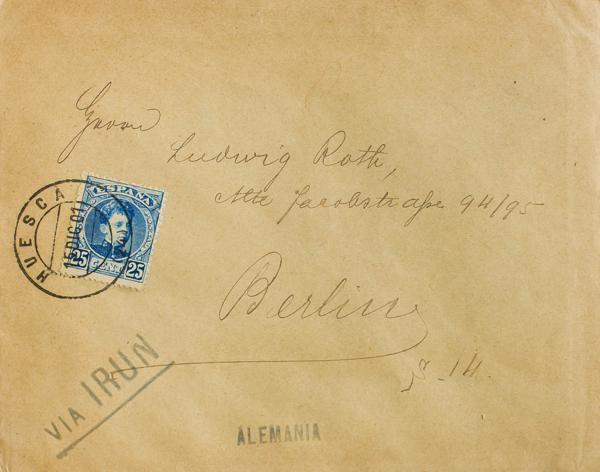 Herrn
Ludwig Roth,
Alte Jacobstraße 94/95
Berlin
S. 14.
ESPAÑA
25 CENT 25
HUESCA
15 DIC 01
VIA IRUN
ALEMANIA